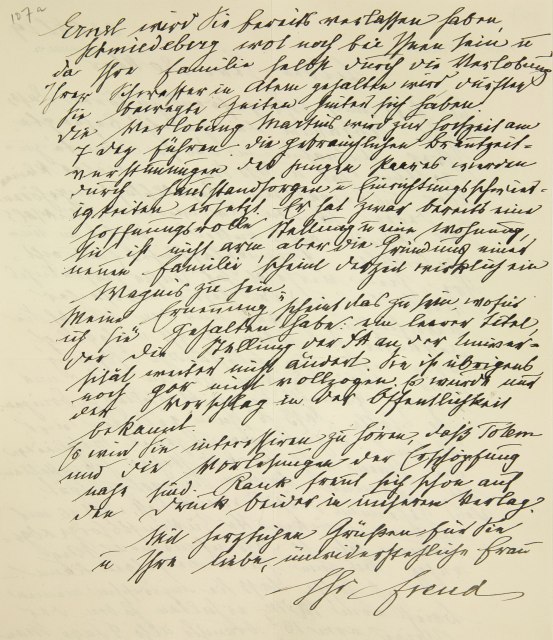 107a
Ernst wird Sie bereits verlassen haben,
Schmiedeberg wol noch bei Ihnen sein u
da Ihre Familie selbst durch die Verlobung
Ihrer Schwester in Atem gehalten wird dürften
Sie bewegte Zeiten hinter sich haben.
Die Verlobung Martins wird zur Hochzeit am
7 Dez führen. Die gebräuchlichen Brautzeit-
verstimmungen des jungen Paares werden
durch Hausstandsorgen u Einrichtungsschwier-
igkeiten ersetzt. Er hat zwar bereits eine
hoffnungsvolle Stellung u eine Wohnung,
sie ist nicht arm aber die Gründung einer
neuen Familie scheint derzeit wirklich ein
Wagnis zu sein.
Meine "Ernennung" scheint das zu sein, wofür
ich sie gehalten habe: ein leerer Titel,
der die Stellung der ΨA an der Univer-
sität weiter nicht ändert. Sie ist übrigens
noch gar nicht vollzogen. Es wurde nur
der Vorschlag in der Öffentlichkeit
bekannt.
Es wird Sie interessiren zu hören, daß Totem
und die Vorlesungen der Erschöpfung
nahe sind. Rank freut sich schon auf
den Druck beider in unserem Verlag.
Mit herzlichen Grüßen für Sie
u Ihre liebe, unwiderstehliche Frau
Ihr Freud